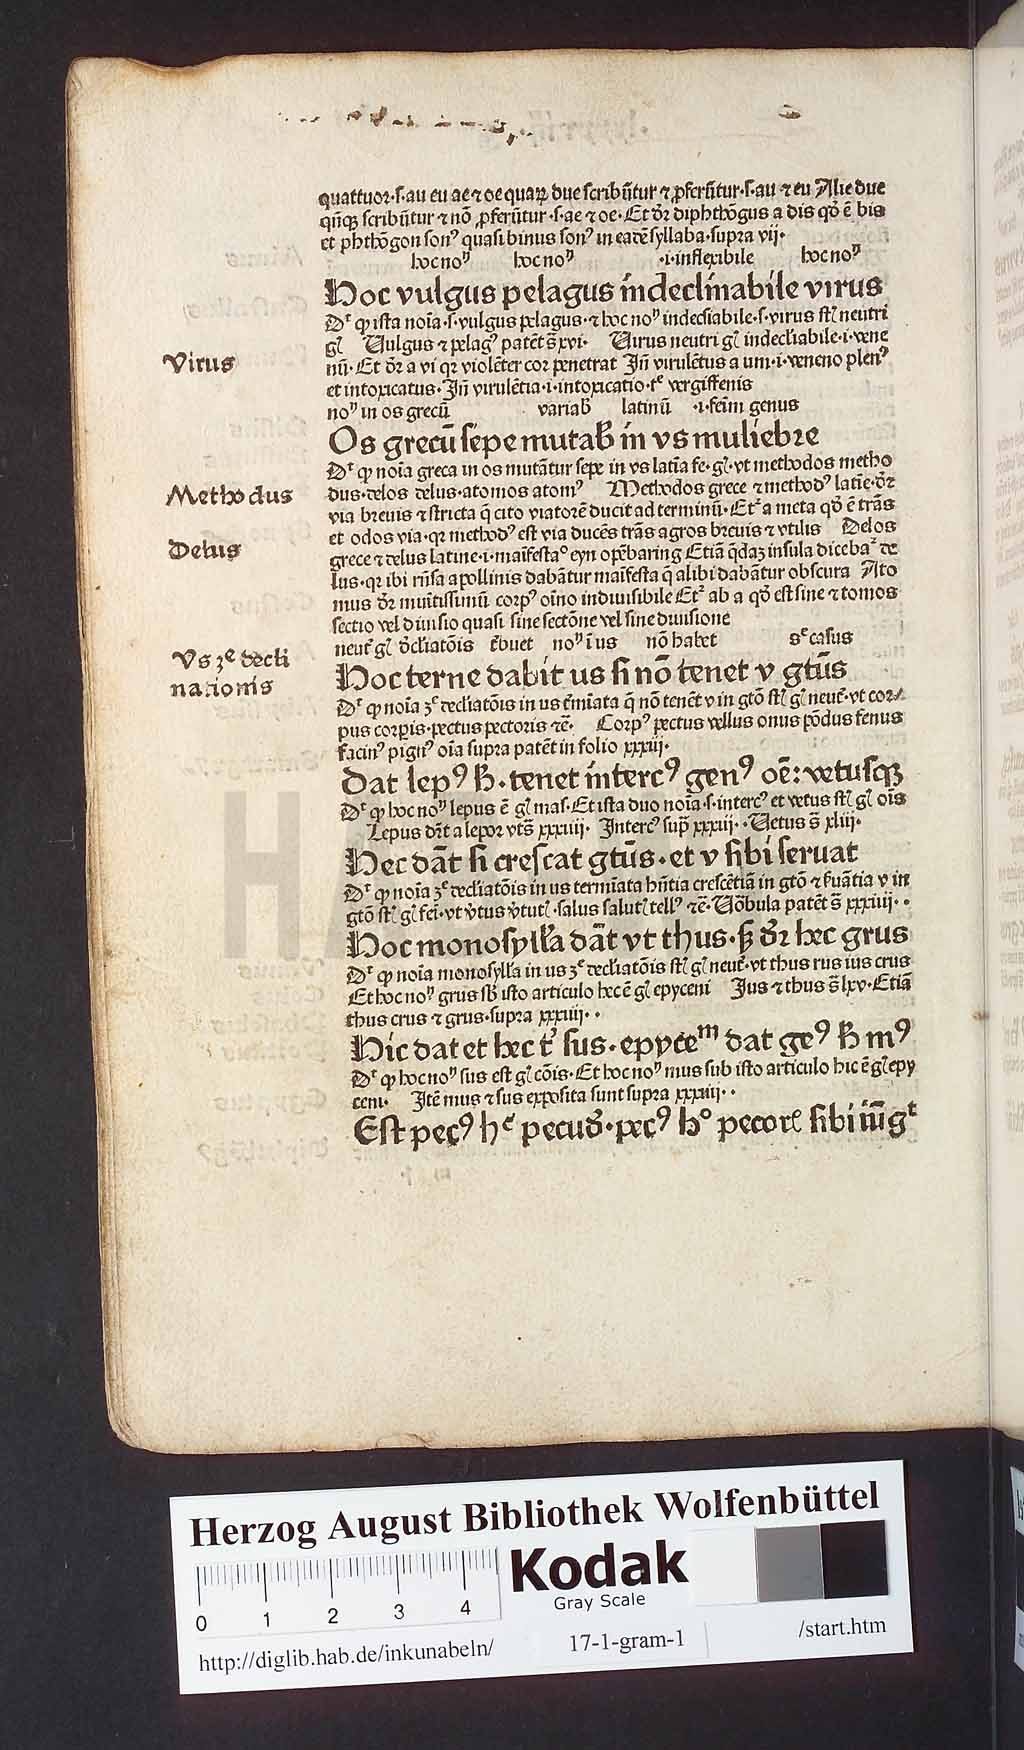 quattuor·s·au eu ae ⁊ oe quaꝝ due scribūtur ⁊ ꝓferūtur·s·au ⁊ eu Alie due
qn̄qꝫ scribūtur ⁊ nō ꝓferūtur·s·ae ⁊ oe·Et dr̄ diphthōgus a dis qd̓ ē bis
et phthōgon sonꝰ quasi binus sonꝰ in eadē syllaba·supra vij·
hoc noᷠ hoc noᷠ ·i·inflexibile hoc noᷠ
Hoc vulgus pelagus indeclinabile virus
Dʳ ꝙ ista noīa·s·vulgus pelagus·⁊ hoc noᷠ indecliabile·s·virus st̄ neutri
gl̄ Uulgus ⁊ pelagꝰ patēt s̄ xvi· Uirus neutri gl̄ indecliabile·i·vene
Virus
nū·Et dr̄ a vi qꝛ violēter cor penetrat Jn̄ virulētus a um·i·veneno plenꝰ
et intoxicatus·Jn̄ virulētia·i·intoxicatio·tᵉ vergiffenis
noᷠ in os grecū variab̄ latinū ·i·femī genus
Os grecū sepe mutab̄ in vs muliebre
Dʳ ꝙ noīa greca in os mutātur sepe in vs latīa fe·gl̄·vt methodos metho
Methodus
dus·delos delus·atomos atomꝰ Methodos grece ⁊ methodꝰ latīe·dr̄
via breuis ⁊ stricta q̄ cito viatorē ducit ad terminū·Etᷣ a meta qd̓ ē trās
et odos via·qꝛ methodꝰ est via ducēs trās agros breuis ⁊ vtilis Delos
Delus
grece ⁊ delus latine·i·maīfestaᵒ eyn opēbaring Etiā q̄daꝫ insula dicebaᷣ de
lus·qꝛ ibi rūsa apollinis dabātur maīfesta q̄ alibi dabātur obscura Ato
mus dr̄ minutissimū corpꝰ oīno indiuisibile Etᷣ ab a qd̓ est sine ⁊ tomos
sectio vel diuisio quasi sine sectōne vel sine diuisione
neutᷣ gl̄ d̓cliatōis t̓buet noᷠ ī us nō habet sᵉ casus
Vs ꝫᵉ decli
nationis
Hoc terne dabit us si nō tenet v gtūs
Dʳ ꝙ noīa ꝫᵉ decliatōis in us t̓mīata q̄ nō tenēt v in gtō st̄ gl̄ neutᷣ·vt cor⸗
pus corꝑis·pectus pectoris ⁊ē· Corpꝰ pectus vellus onus pōdus fenus
facinꝰ pignꝰ oīa supra patēt in folio xxxiij·
Dat lepꝰ h̄·tenet intercꝰ genꝰ oē: vetusqꝫ
Dʳ ꝙ hoc noᷠ lepus ē gl̄ mas·Et ista duo noīa·s·intercꝰ et vetus st̄ gl̄ oīs
Lepus dr̄t a lepor vts̄ xxxiiij· Jntercꝰ sup̄ xxxiij··Uetus s̄ xliij·
Hec dāt si crescat gtūs·et v sibi seruat
Dʳ ꝙ noīa ꝫᵉ decliatōis in us termīata hn̄tia crescētiā in gtō ⁊ ẜuātia v in
gtō st̄ gl̄ fei·vt v̓tus v̓tut̄·salus salut̄ tellꝰ ⁊ē·Uōbula patēt s̄ xxxiiij··
Hoc monosyll̄a dāt vt thus·ẜꝫ dr̄ hec grus
Dʳ ꝙ noīa monosyll̄a in us ꝫᵉ decliatōis st̄ gl̄ neutᷣ·vt thus rus ius crus
Et hoc noᷠ grus sb̄ isto articulo hec ē gl̄ epyceni Jus ⁊ thus s̄ lxv·Etiā
thus crus ⁊ grus·supra xxxiiij··
Hic dat et hec tᷣ sus·epyceᵐ dat geꝰ h̄ mꝰ
Dʳ ꝙ hoc noᷠ sus est gl̄ cōis·Et hoc noᷠ mus sub isto articulo hic ē gl̄ epy
ceni· Jtē mus ⁊ sus exposita sunt supra xxxiiij··
Est pecꝰ hᵉ pecud̓·pecꝰ hᵒ pecor̄ sibi iūgᵗ
Herzog August Bibliothek Wolfenbüttel
0 1 2 3 4
Kodak
Gray Scale
http://diglib.hab.de/inkunabeln/ 17-1-gram-1 /start.htm